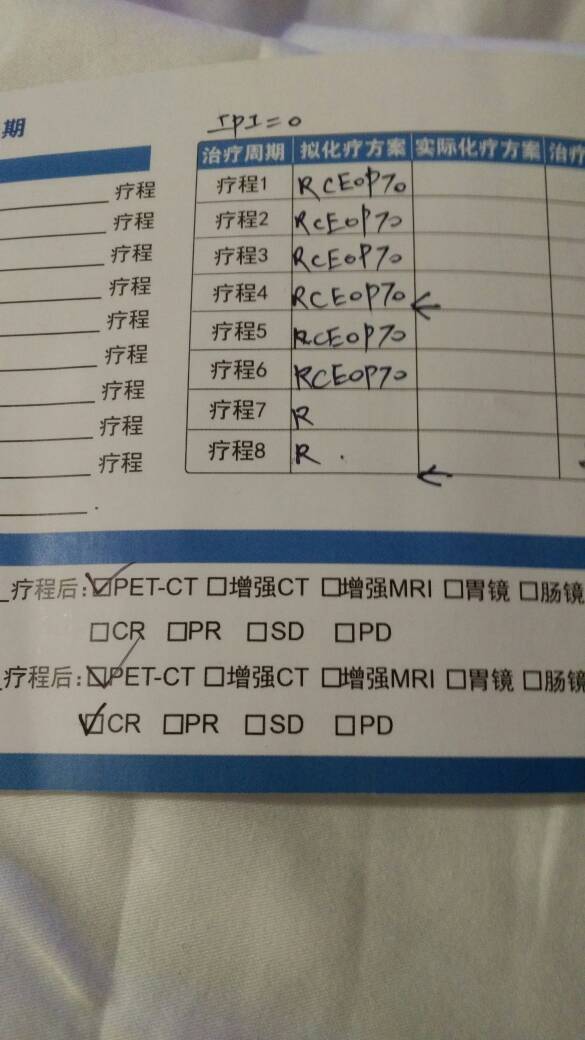 期
IPI=0
治疗周期 拟化疗方案 实际化疗方案 治疗
疗程 疗程1 RCEOP70
疗程 疗程2 RCEOP70
疗程 疗程3 RCEOP70
疗程 疗程4 RCEOP70 ←
疗程 疗程5 RCEOP70
疗程 疗程6 RCEOP70
疗程 疗程7 R
疗程 疗程8 R .
疗程 ←
.
疗程后:☑PET-CT □增强CT □增强MRI □胃镜 □肠镜
□CR □PR □SD □PD
疗程后:☑PET-CT □增强CT □增强MRI □胃镜 □肠镜
☑CR □PR □SD □PD